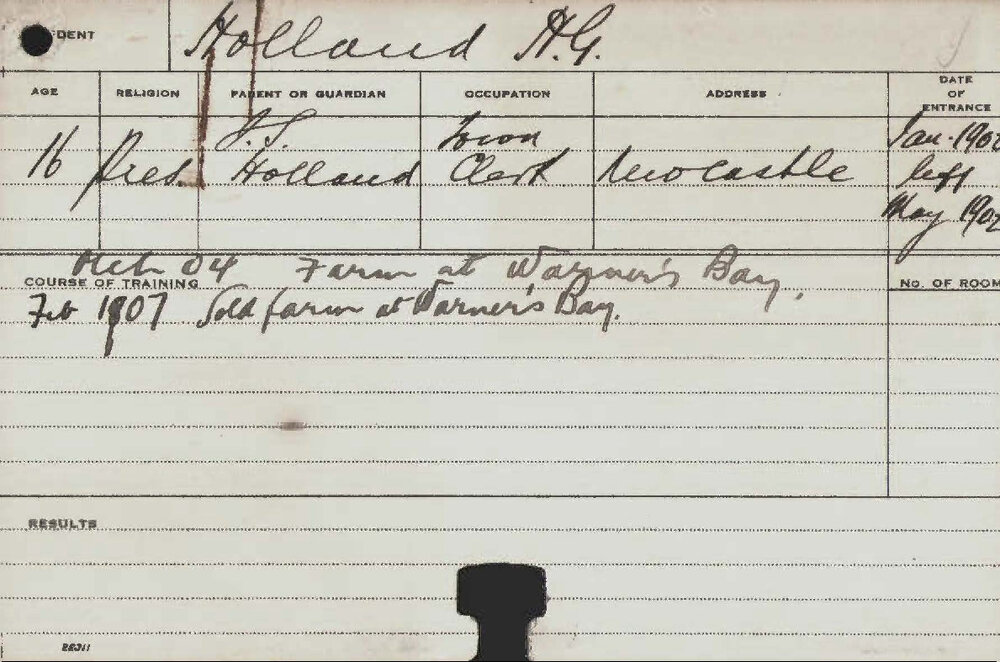 DENT Holland H.G.
AGE RELIGION PARENT OR GUARDIAN OCCUPATION ADDRESS DATE OF ENTRANCE
16 Pres. Holland Town Clerk Newcastle Jan. 190
left
May 190
04 Farm at Warner's Bay.
COURSE OF TRAINING NO. OF ROOM
Feb 1907 Sold farm at Warner's Bay.
RESULTS